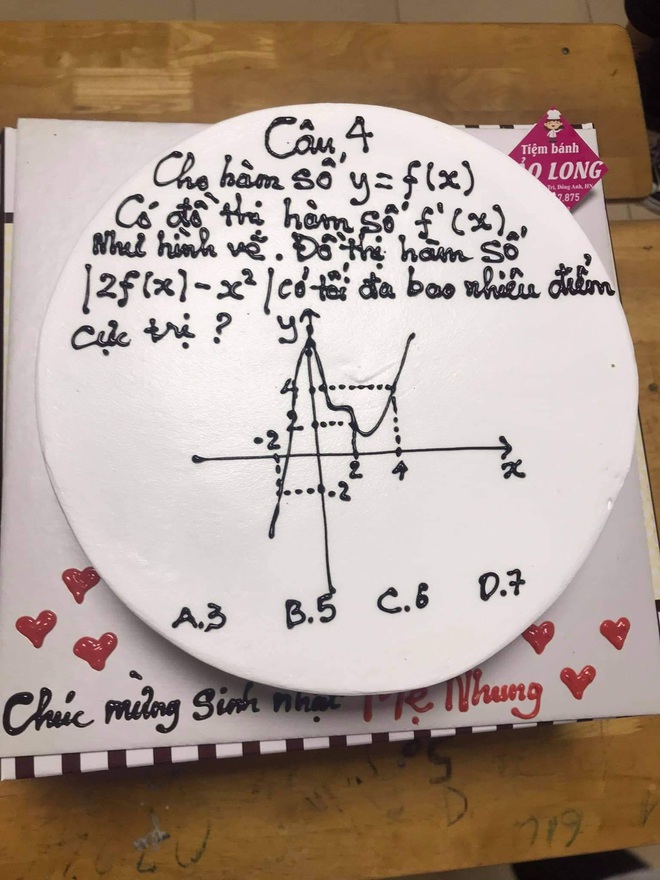 Câu 4
Cho hàm số y = f(x)
Có đồ thị hàm số f'(x)
Như hình vẽ. Đồ thị hàm số
|2f(x) - x² | có tối đa bao nhiêu điểm
cực trị ?
y
4
2
-2
2
4
x
-2
A.3 B.5 C.6 D.7
Chúc mừng sinh nhật Mẹ Nhung
Tiệm bánh
ẢO LONG
Trì, Đông Anh, HN
7.875